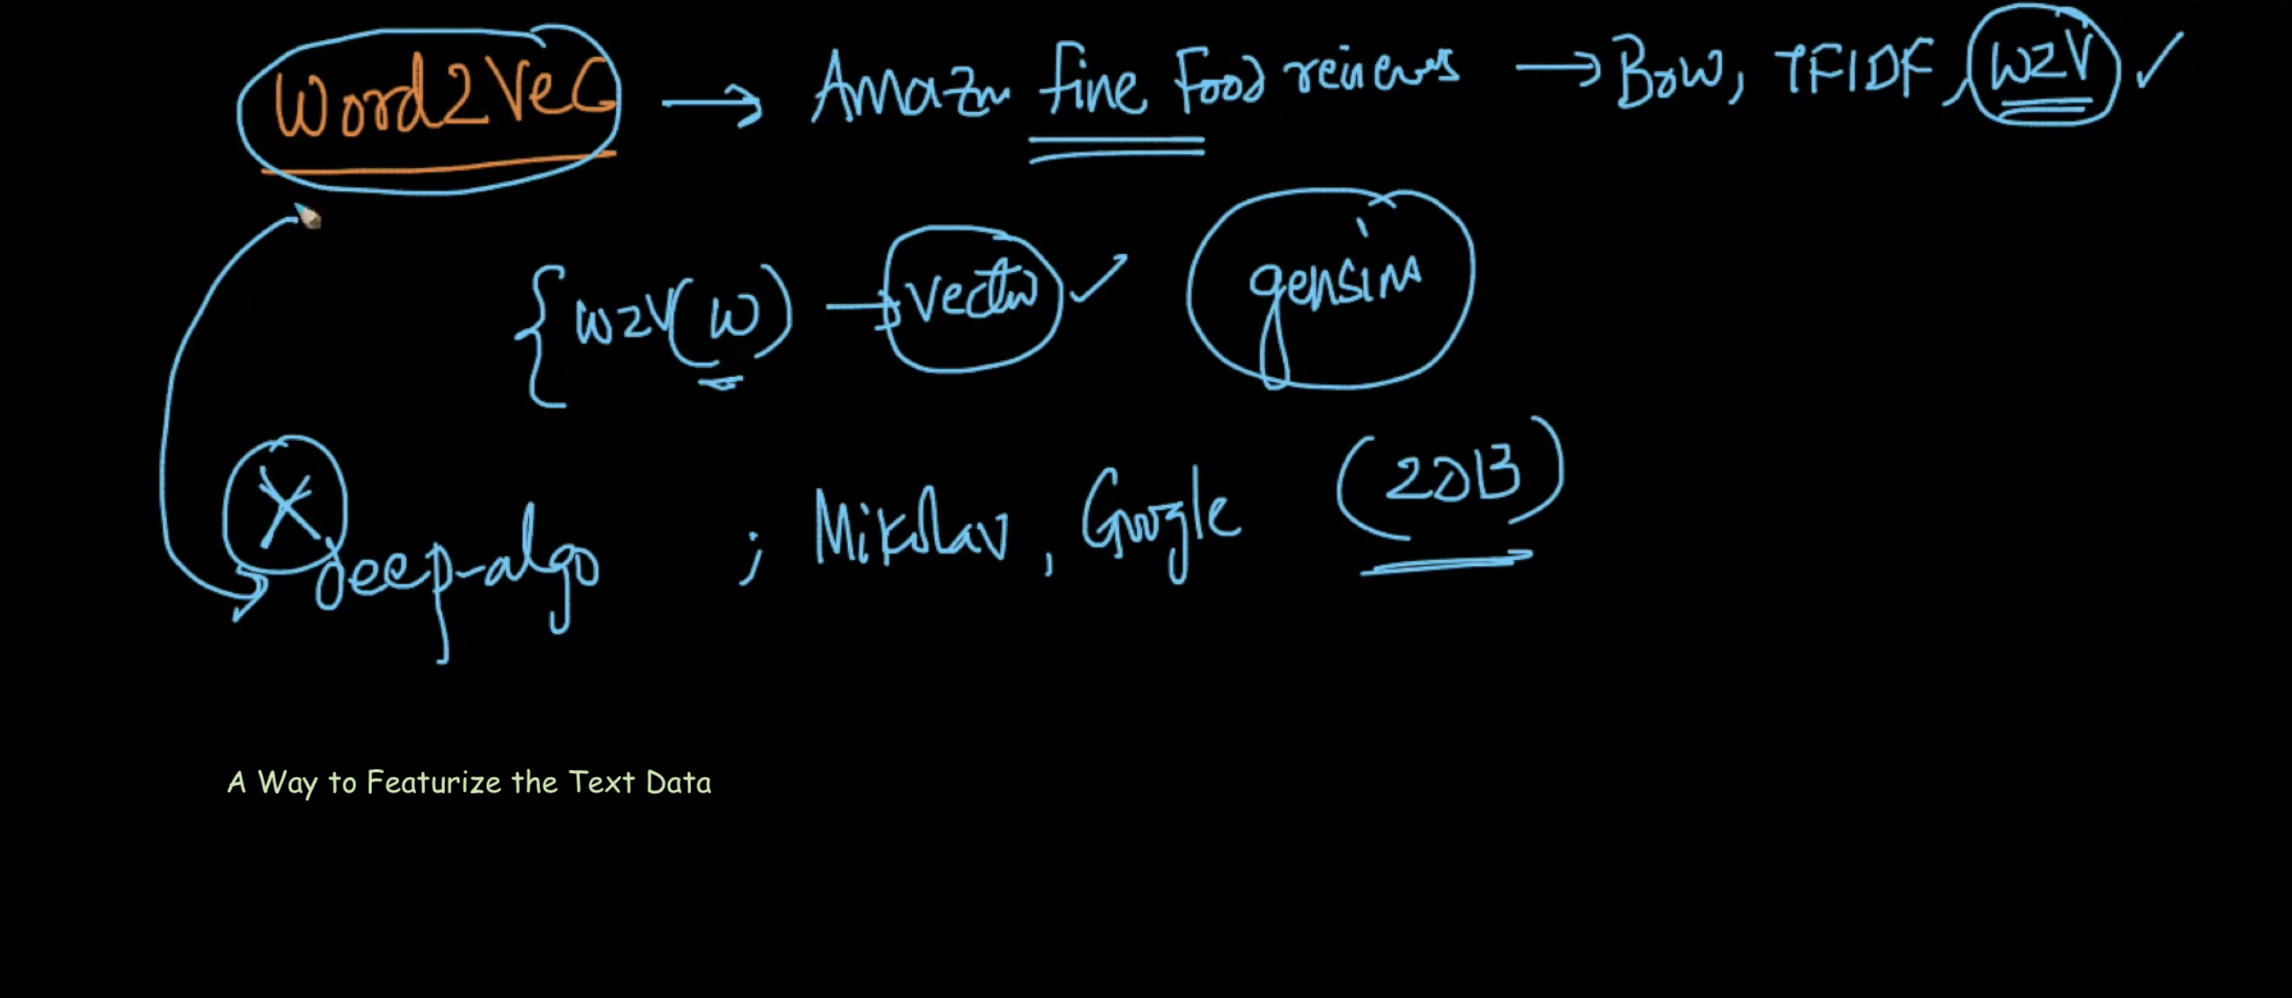 Word2Vec → Amazon fine Food reviews → BOW, TFIDF, W2V ✓
{ W2V(w) → vector ✓ gensim
X deep-algo ; Mikolav, Google (2013)
A Way to Featurize the Text Data